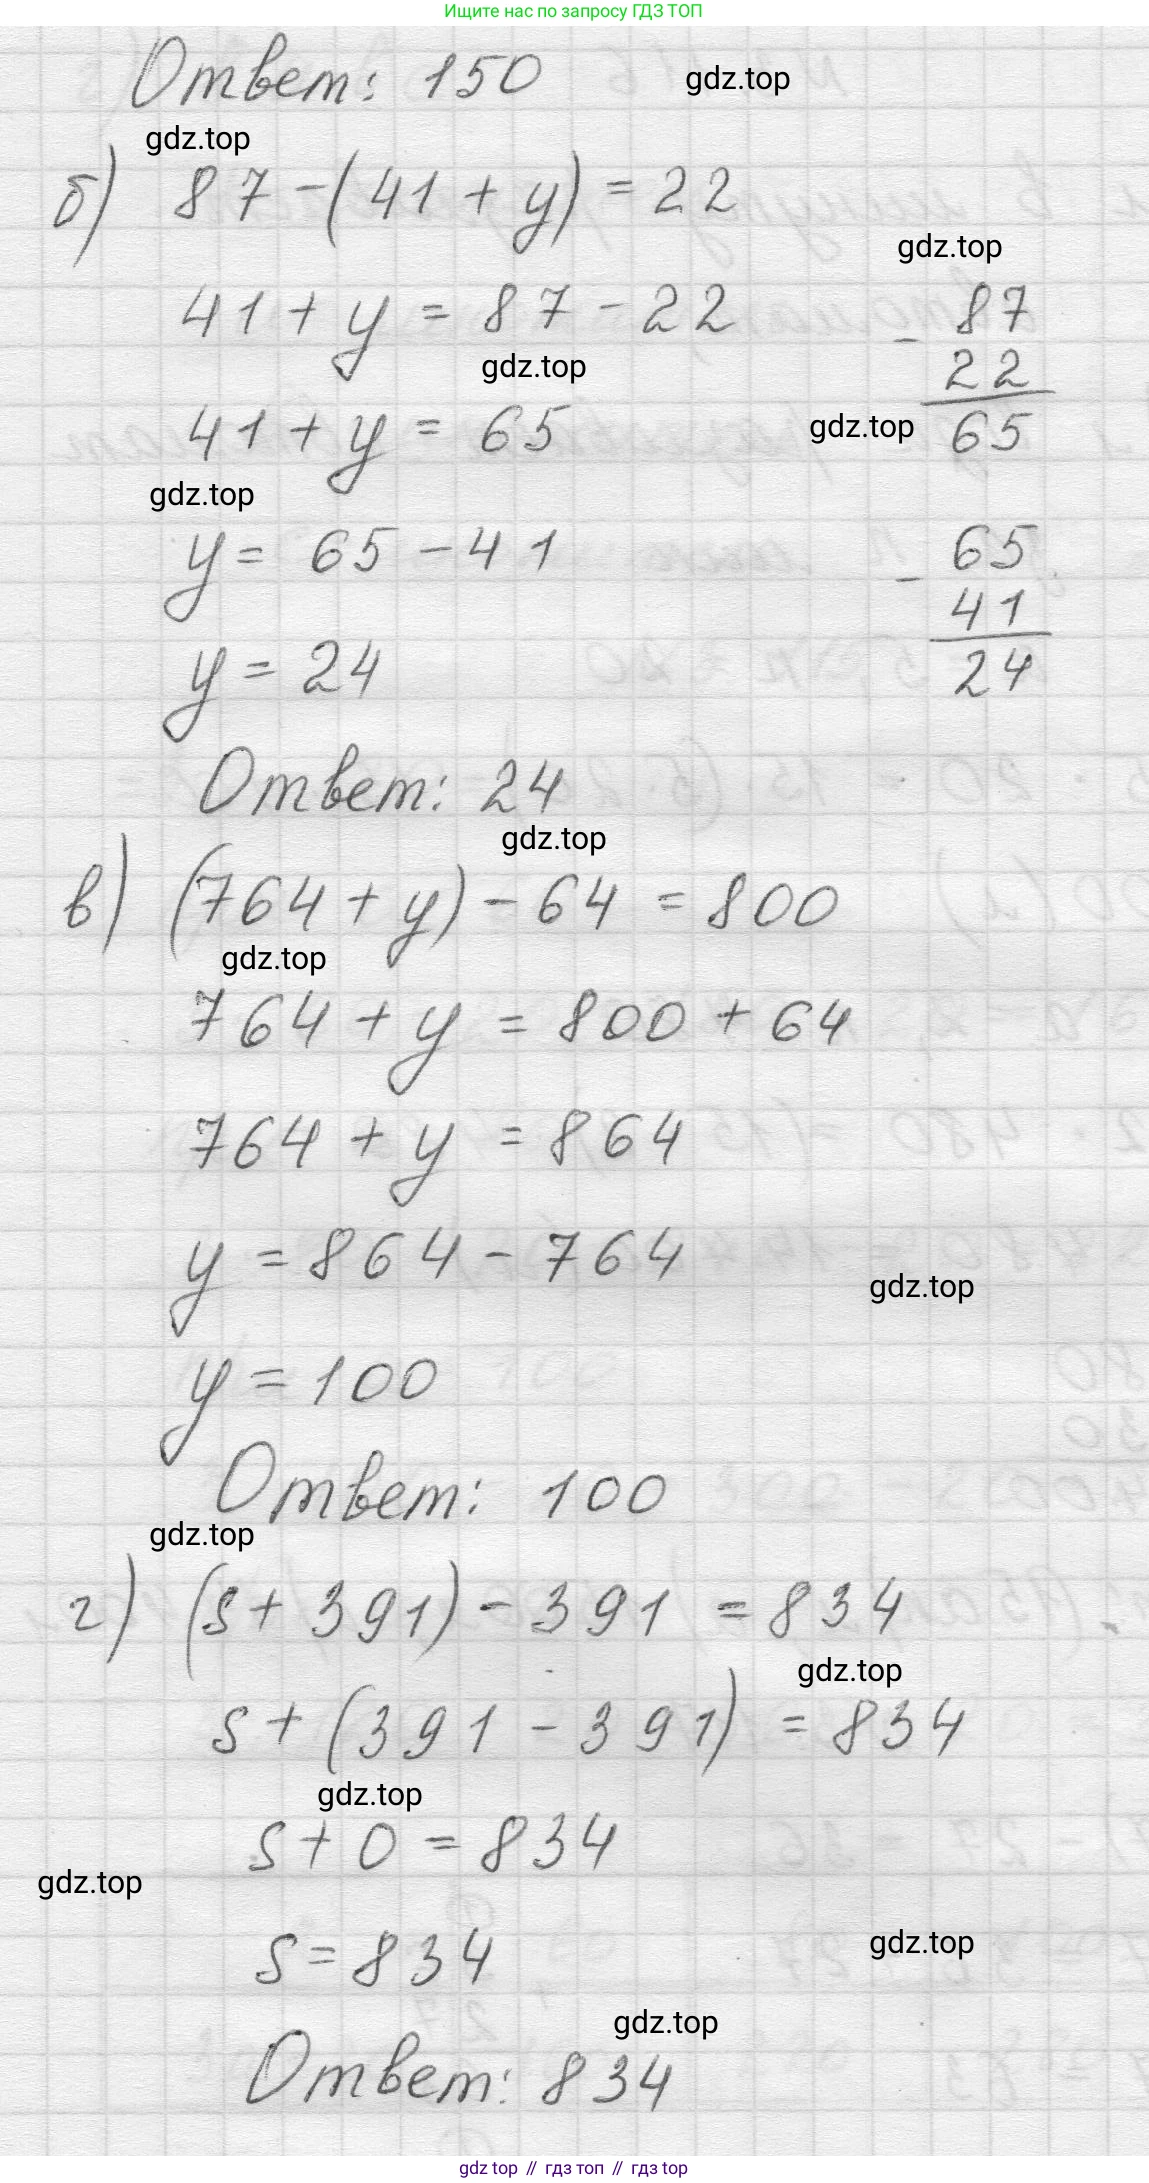 Ищите нас по запросу ГДЗ ТОП
Ответ: 150
gdz.top
gdz.top
б) 87 - (41 + y) = 22
gdz.top
41 + y = 87 - 22
- 87
22
65
gdz.top
41 + y = 65
gdz.top
gdz.top
y = 65 - 41
- 65
41
24
y = 24
Ответ: 24
gdz.top
в) (764 + y) - 64 = 800
gdz.top
764 + y = 800 + 64
764 + y = 864
y = 864 - 764
gdz.top
y = 100
Ответ: 100
gdz.top
г) (s + 391) - 391 = 834
gdz.top
s + (391 - 391) = 834
gdz.top
s + 0 = 834
gdz.top
s = 834
gdz.top
gdz.top
Ответ: 834
gdz top // гдз топ // гдз top